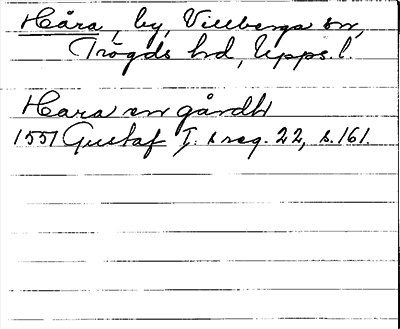 Håra, by, Villberga sn,
Trögds hd, Upps. l.
Hara en gårdh
1551 Gustaf I:s reg. 22, s. 161.